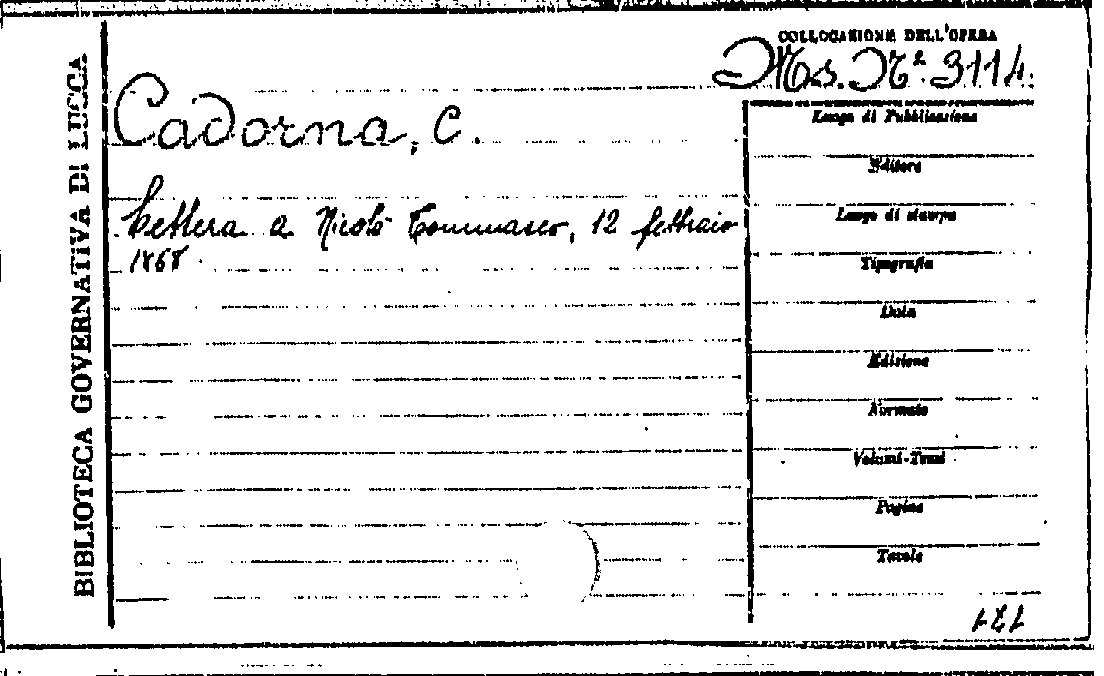 BIBLIOTECA GOVERNATIVA DI LUCCA
COLLOCAZIONE DELL'OPERA
Ms. N.º 3114.
Cadorna, C.
Lettera a Nicolò Tommaseo, 12 febbraio
1868.
Luogo di Pubblicazione
Editore
Luogo di stampa
Tipografia
Data
Edizione
Formato
Volumi-Tomi
Pagine
Tavole